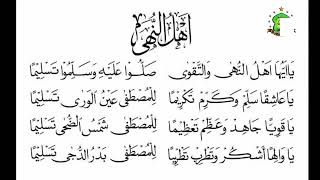 أَهْلُ النُّهَى
يَا أَيُّهَا أَهْلُ النُّهَى وَالتَّقْوَى صَلُّوا عَلَيْهِ وَسَلِّمُوا تَسْلِيمًا
يَا عَاشِقًا سَلِّمْ وَكَرِّمْ تَكْرِيمًا لِلْمُصْطَفَى عَيْنُ الْوَرَى تَسْلِيمًا
يَا قَوِيًّا جَاهِدْ وَعَظِّمْ تَعْظِيمًا لِلْمُصْطَفَى شَمْسُ الضُّحَى تَسْلِيمًا
يَا وَالِهًا أَشْكُرْ وَتَطْرِبْ تَطْرِيبًا لِلْمُصْطَفَى بَدْرُ الدُّجَى تَسْلِيمًا